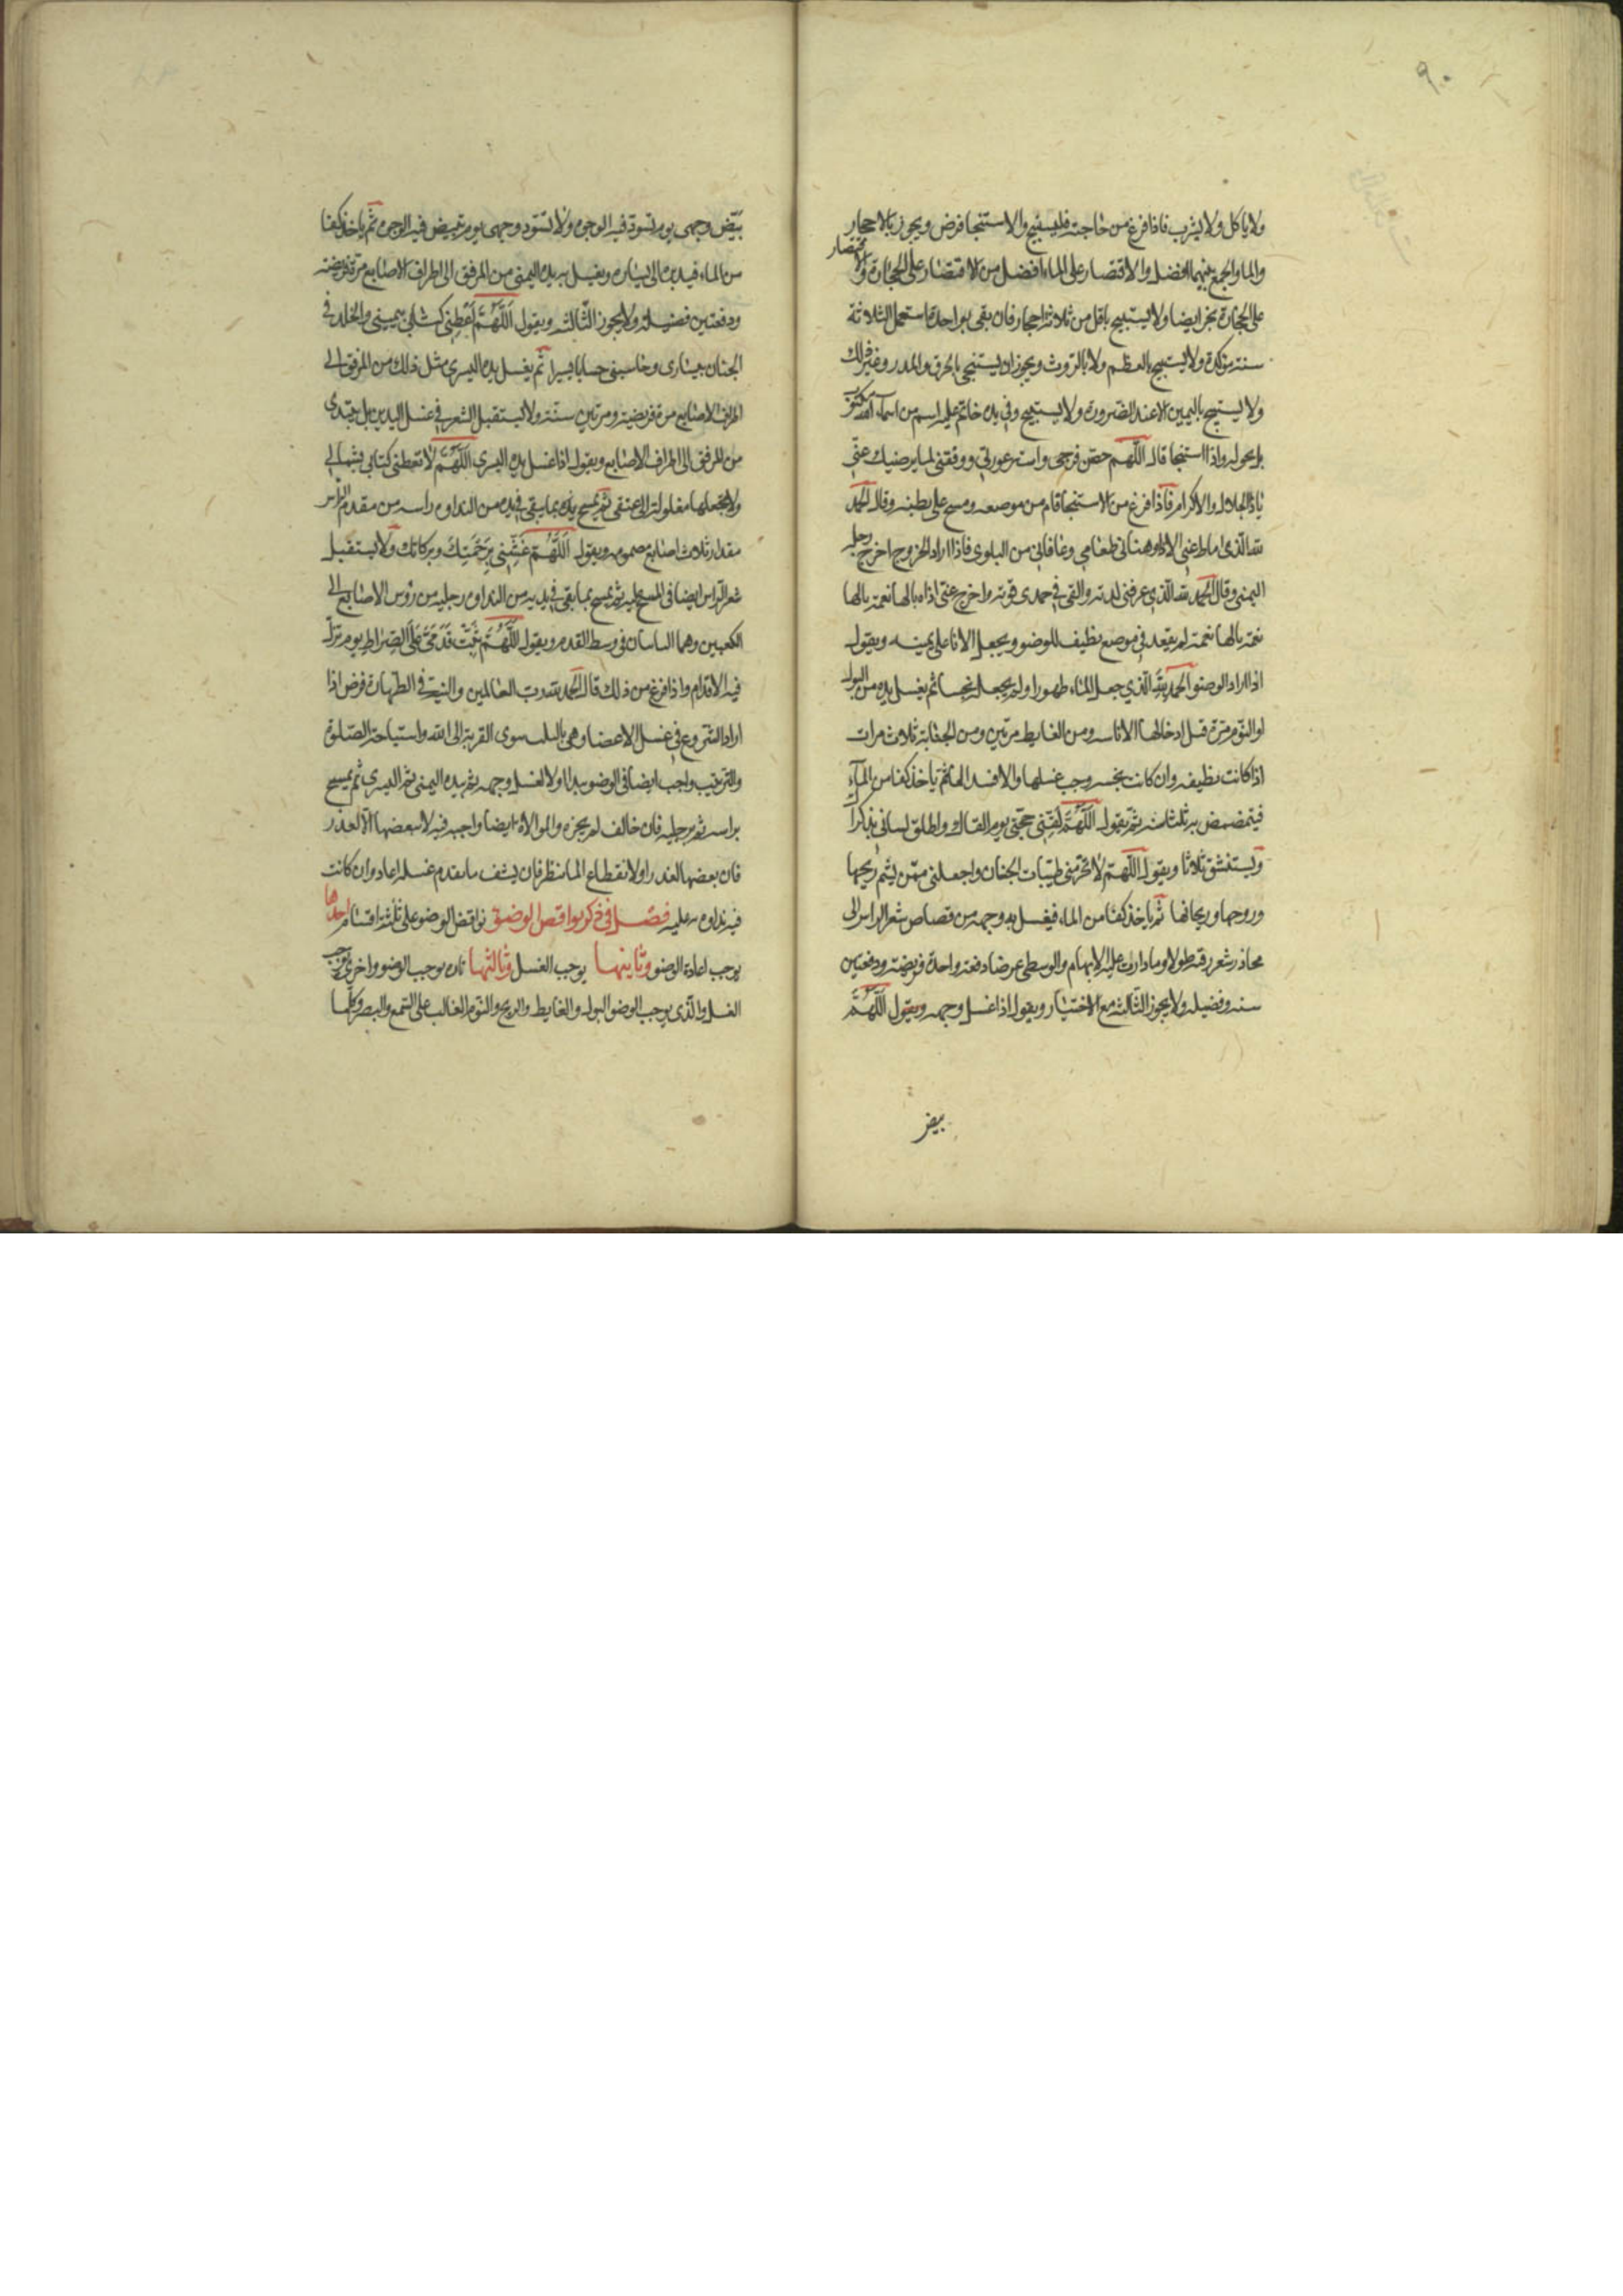 ٩٠
ولا ياكل ولا يشرب فاذا فرغ من حاجته فليستنج والاستنجا فرض ويجوز بالاحجار
والماء والجمع بينهما افضل والاقتصار على الماء افضل من الاقتصار على الحجارة والاقتصار
على الحجارة يجز ايضا ولا يستنج باقل من ثلاثة احجار فان نقى بواحدة استعمل الثلاثة
سنة مؤكدة ولا يستنج بالعظم ولا بالروث ويجوز ان يستنجى بالخرق والمدر وغير ذلك
ولا يستنج باليمين الا عند الضرورة ولا يستنج وفي يده خاتم عليه اسم من اسماء الله مكتوب
بل يحوله واذا استنجا قال اللّهم حصّن فرجى واستر عورتي ووفقنى لما يرضيك عنّي
ياذا الجلال والاكرام فاذا فرغ من الاستنجا قام من موضعه ومسح على بطنه وقال الحمد
لله الّذى اماط عنى الاذا وهنانى طعامي وعافانى من البلوى فاذا اراد الخروج اخرج رجله
اليمنى وقال الحمد لله الّذي عرفنى لذته والقى في جسدى قوته واخرج عنّى اذاه يالها نعمة يالها
نعمة يالها نعمة ثم يقعد في موضع نظيف للوضو ويجعل الانا على يمينه ويقول
اذا اراد الوضو الحمد للّه الّذي جعل الماء طهورا ولم يجعله نجسا ثم يغسل يده من البول
او النّوم مرّة قبل ادخالها الانا ومن الغايط مرتين ومن الجنابة ثلاث مرات
اذا كانت نظيفه وان كانت نجسه وجب غسلها والا فسد الماء ثم ياخذ كفا من المآء
فيتمضمض به ثلثا ثم يقول اللّهُمَّ لَقِّنِي حجّتي يوم القاك واطلق لسانى بذكراك
ويستنشق ثلاثا ويقول اللّهمّ لا تحرّمني طيّبات الجنان واجعلنى ممّن يشم ريحها
وروحها وريحانها ثم ياخذ كفا من الماء فيغسل به وجهه من قصاص شعر الراس الى
محاذر شعر ذقنه طولا وما دارت عليه الابهام والوسطى عرضا دفعة واحدة فريضة ودفعتين
سنه وفضيله ولا يجوز الثّالثه مع الاختيار ويقول اذا غسل وجهه ويقول اللّهُمَّ
بيض
بيّض وجهى يوم تسود فيه الوجوه ولا تسود وجهى يوم تبيض فيه الوجوه ثم ياخذ كفا
من الماء فيديره الى يساره ويغسل به يده اليمنى من المرفق الى اطراف الاصابع مرّة فريضة
ودفعتين فضيلة ولا يجوز الثّالثه ويقول اَللّهُمَّ اَعْطِنِي كتابي بيمينى والخلد في
الجنان بيسارى وحاسبنى حسابا يسيرا ثم يغسل يده اليسرى مثل ذلك من المرفق الى
اطراف الاصابع مرة فريضة ومرتين سنّة ولا يستقبل الشعر في غسل اليدين بل يبتدى
من المرفق الى اطراف الاصابع ويقول اذا غسل يده اليسرى اللّهُمَّ لا تعطنى كتابي بشمالي
ولا تجعلها مغلولة الى عنقى ثم يمسح بما يبقى في يده من النداوه راسه من مقدم الرأس
مقدار ثلاث اصابع مضمومه ويقول اَللّهُمَّ غَشِّنِي بِرَحْمَتِكَ وبركاتك ولا يستقبل
شعر الراس ايضا في المسح عليه ثم يمسح بما بقى في يديه من النداوه رجليه من رؤس الاصابع الى
الكعبين وهما الناتيان في وسط القدم ويقول اللّهُمَّ ثَبِّتْ قَدَمَيَّ عَلَى الصّراط يوم تزلّ
فيه الاقدام واذا فرغ من ذلك قال الحمد لله ربّ العالمين والنيّة في الطّهارة فرض اذا
اراد الشّروع في غسل الاعضا وهي بالقلب ينوى القربة الى الله واستباحة الصّلوة
والترتيب واجب ايضا في الوضو يبدا اولا بغسل وجهه ثم بيده اليمنى ثم اليسرى ثم يمسح
براسه ثم برجليه فان خالف لم يجزه والموالاة ايضا واجبه فيه لا يبعضها الّا لعذر
فان بعضها لعذر او لانقطاع الماء نظر فان ينشف ما تقدم غسله اعاد وان كانت
فيه نداوه بنى عليه فصل في ذكر نواقض الوضو نواقض الوضو على ثلثة اقسام احدها
يوجب اعادة الوضو وثانيها يوجب الغسل وثالثها تاره يوجب الوضو واخرى يوجب
الغسل والّذى يوجب الوضو البول والغايط والريح والنّوم الغالب على السّمع والبصر وكلّما